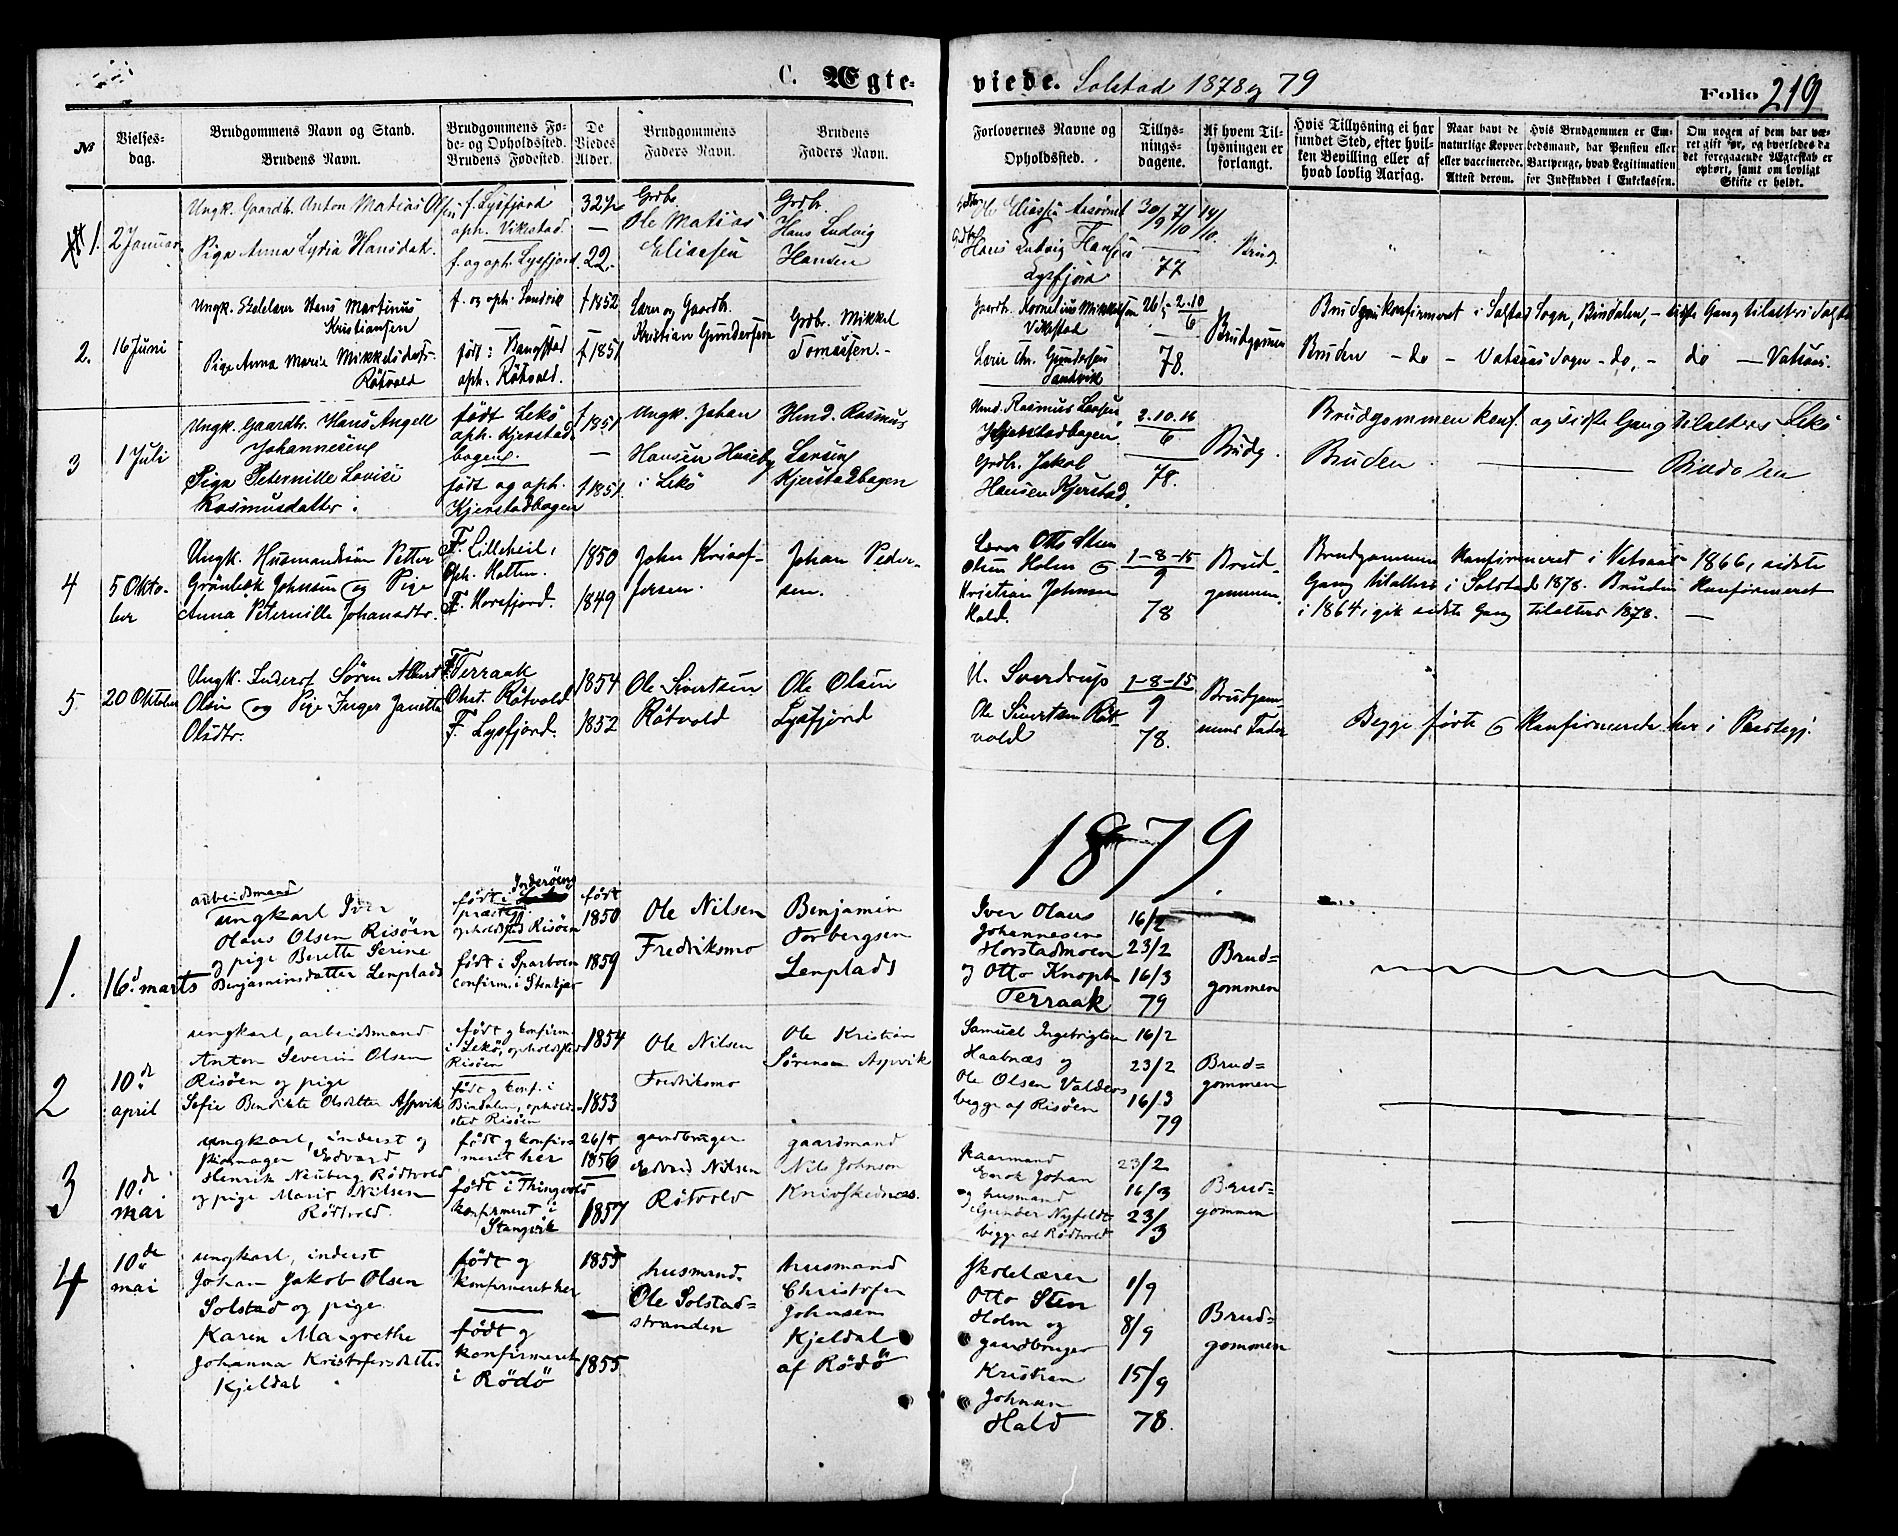 C. Ægteviede. Solstad 1878 og 79
Folio 219
№
Vielses-
dag.
Brudgommens Navn og Stand.
Brudens Navn.
Brudgommens Fø-
de- og Opholdssted.
Brudens Fødested.
De
Viedes
Alder.
Brudgommens
Faders Navn.
Brudens
Faders Navn.
Forlovernes Navne og
Opholdssted.
Tillys-
nings-
dagene.
Af hvem Til-
lysningen er
forlangt.
Hvis Tillysning ei har
fundet Sted, efter hvil-
ken Bevilling eller af
hvad lovlig Aarsag.
Naar havt de
naturlige Kopper
eller vaccinerede.
Attest derom.
Hvis Brudgommen er Em-
bedsmand, har Pension eller
Vartpenge, hvad Legitimation
for Indskuddet i Enkekassen.
Om nogen af dem har væ-
ret gift før, og hvorledes da
det foregaaende Ægteskab er
ophørt, samt om lovligt
Skifte er holdt.
1.
2 Januar
Ungk. Gaardb. Anton Matias Olsen
Pige Anna Lydia Hansdat.
f. Lysfjord
oph. Vikestad.
f. og oph. Lysfjord.
32½
—
22.
Grdb.
Ole Matias
Eliassen
Grdb.
Hans Ludvig
Hansen
Ole Eliassen
Hans Ludvig Hansen
Lysfjord
30/9 7/10 14/10.
77
Brudg.
2.
16 Juni
Ungk. Skolelærer Hans Martinus
Kristiansen
Pige Anna Maria Mikkelsdatt.
Røtvold
f. og oph. Sandvik
født: Vangstad
oph. Røtvold.
f 1852
f 1851
Lærer og Gaardb.
Kristian Gundersen
Grdb. Mikkel
Tomassen.
Gaardb. Kornelius Mikkelsen
Vikestad
Lærer Chr. Gundersen
Sandvik
26/5 2-10
6
78.
Brudgommen
Brudg. konfirmeret i Solstad Sogn, Bindalen, - sidste Gang tilalters i Solstad
Bruden - do - Vatsaas Sogn - do, - do — Vatsaas.
3
1 Juli
Ungk. Gaardbr. Hans Angell
Johannesen
Pige Peternille Lovise
Rasmusdatter.
født Lekø
oph. Kjerstad-
bogen.
født og oph.
Kjerstadbogen
f 1851
—
f 1851.
Ungk. Johan
Hansen Huseby
i Lekø
Hmd. Rasmus
Larsen
Kjerstadbogen
Hmd. Rasmus Larsen
Kjerstadbogen
Grdb. Jakob
Hansen Kjerstad.
2.10.16
6
78.
Brudg.
Brudgommen konf. og sidste Gang tilalters Lekø
Bruden — Bindalen
4
5 Okto-
ber
Ungk. Husmandssøn Petter
Grønbek Johnsen og Pige
Anna Peternille Johansdtr.
F. Lilleheil,
Oph. Holten.
F. Horsfjord.
1850
1849
John Kristof-
fersen.
Johan Peder-
sen.
Lærer Otto Steen
Olsen Holm og
Kristian Johnsen
Hald.
1-8-15
9
78
Brud-
gommen.
Brudgommen Konfirmeret i Vatsaas 1866, sidste
Gang tilalters i Solstad 1878. Bruden Konfirmeret
i 1864, gik sidste Gang tilalters 1878. —
5
20 Oktober
Ungk. Inderst Søren Albert
Olsen og Pige Inger Janetta
Olsdtr.
F. Terraak
Ohst. Røtvold
F. Lysfjord.
1854
1852
Ole Sivertsen
Røtvold
Ole Olsen
Lysfjord
U. Sverdrup
Ole Sivertsen Røt-
vold
1-8-15
9
78.
Brudgom-
mens Fader
Begge fødte og Konfirmerede her i Præstegj.
1879.
1.
16d marts
arbeidsmand
ungkarl Iver
Olaus Olsen Risøen
og pige Berette Serine
Benjaminsdatter Lenplads
født i Inderøens
præstegj.
opholdssted Risøen
født i Sparboen
confirm. i Stenkjær
født
1850
1859
Ole Nilsen
Fredriksmo
Benjamin
Torbergsen
Lenplads
Iver Olaus
Johannesen
Horstadmoen
og Otto Knoph
Terraak
16/2
23/2
16/3
79
Brud=
gommen
2
10de
april
ungkarl, arbeidsmand
Anton Severin Olsen
Risøen og pige
Sofie Bendikte Olsdatter Aspvik
født og konfirm.
i Lekø, opholdssted
Risøen
født og konf. i
Bindalen, opholds-
sted Risøen
1854
1853
Ole Nilsen
Fredriksmo
Ole Kristian
Sørensen Aspvik
Samuel Ingebrigtsen
Haabnæs og
Ole Olsen Valders
begge af Risøen
16/2
23/2
16/3
79
Brud=
gommen
3
10de
mai
ungkarl, inderst og
skomager Edvard
Henrik Neuberg Rødtvold
og pige Marit Nilsen
Rødtvold.
født og konfir-
meret her
født i Thingvold
konfirmeret i
Stangvik
26/5
1856
1857
gaardbruger
Edvard Nilsen
Røtvold
gaardmand
Nils Johnson
Knivskednes.
Kaarmand
Enok Johan
og husmand
Gunder Nyfeldt
begge af Rødtvold
23/2
16/3
23/3
Brud=
gommen
4
10de
mai
ungkarl, inderst
Johan Jakob Olsen
Solstad og pige
Karen Margrethe
Johanna Kristofersdatter
Kjeldal
født og
konfirmeret her
født og
konfirmeret
i Rødø
1855
1855
husmand.
Ole Solstad=
stranden
husmand
Christofer
Johnsen
Kjeldal
af Rødø
skolelærer
Otto Sten
Holm og
gaardbruger
Kristian
Johnsen
Hald
1/9
8/9
15/9
78
Brud=
gommen